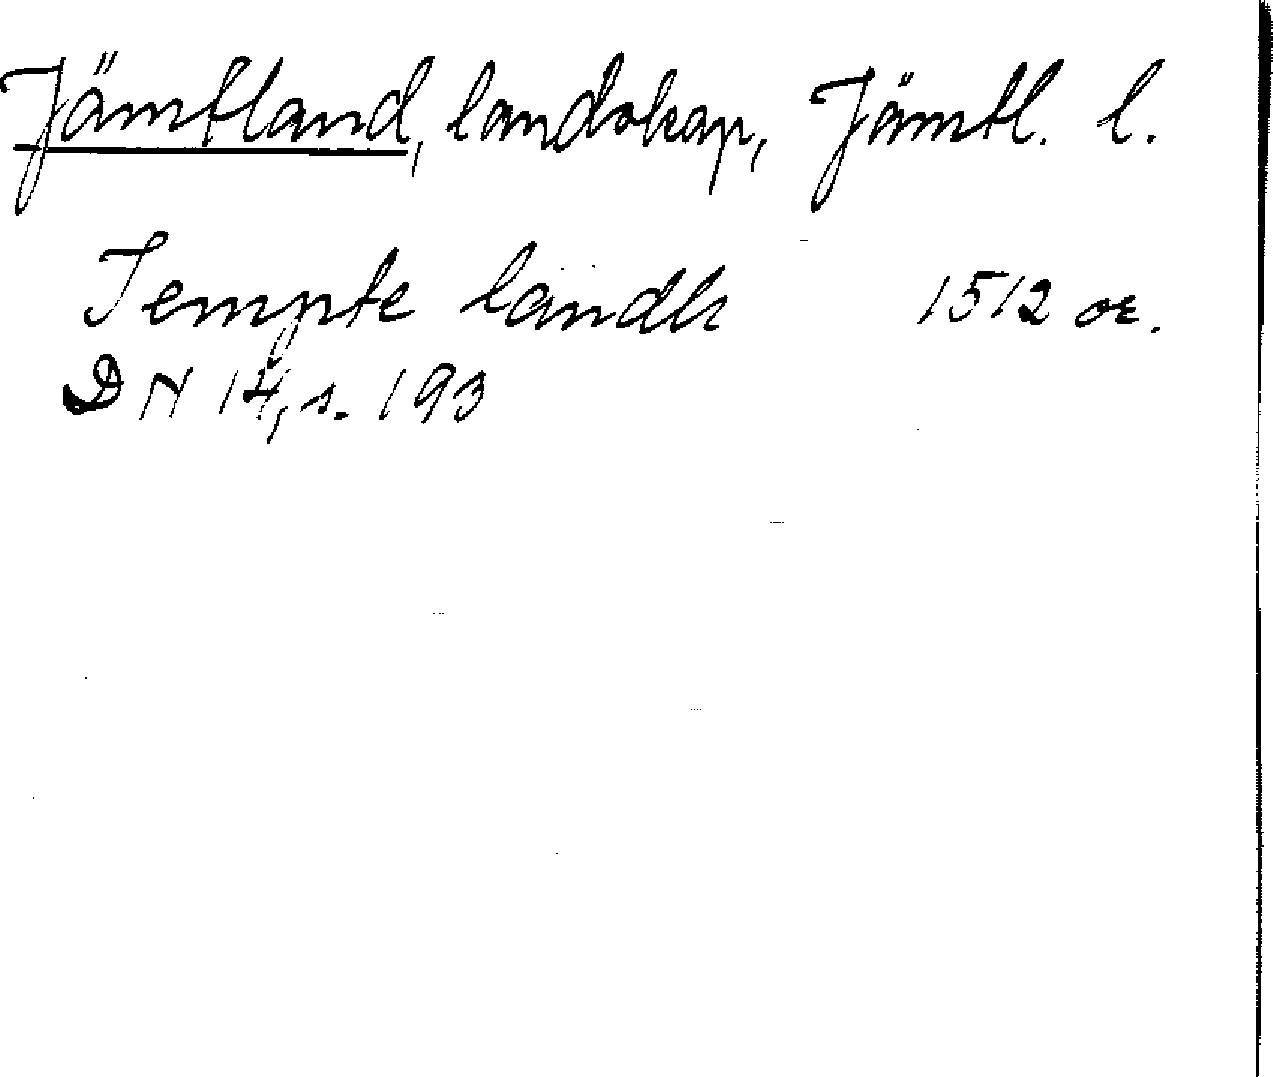 Jämtland, landskap, Jämtl. l.
Jempte landh 1512 or.
DN 14, s. 193